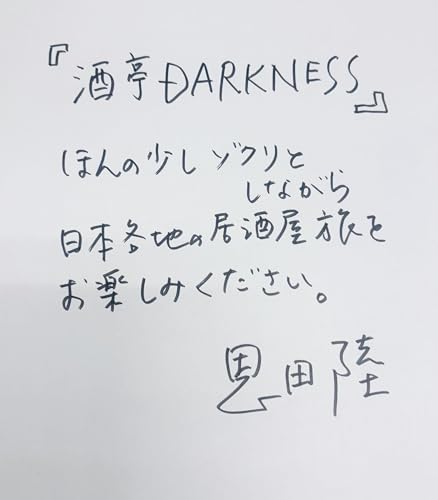 『酒亭DARKNESS』
ほんの少しゾクリと
しながら
日本各地の居酒屋旅を
お楽しみください。
恩田陸